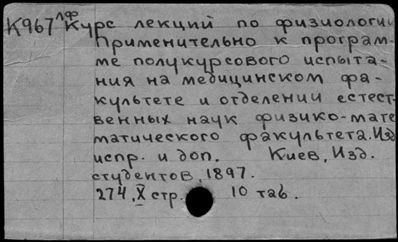 К967 лф Курс лекций по физиологии
Применительно к програм-
ме полукурсового испыта-
ния на медицинском фа-
культете и отделении естест-
венных наук физико-мате
матического факультета. Изд
испр. и доп. Киев, Изд.
студентов, 1897.
274, X стр. 10 таб.